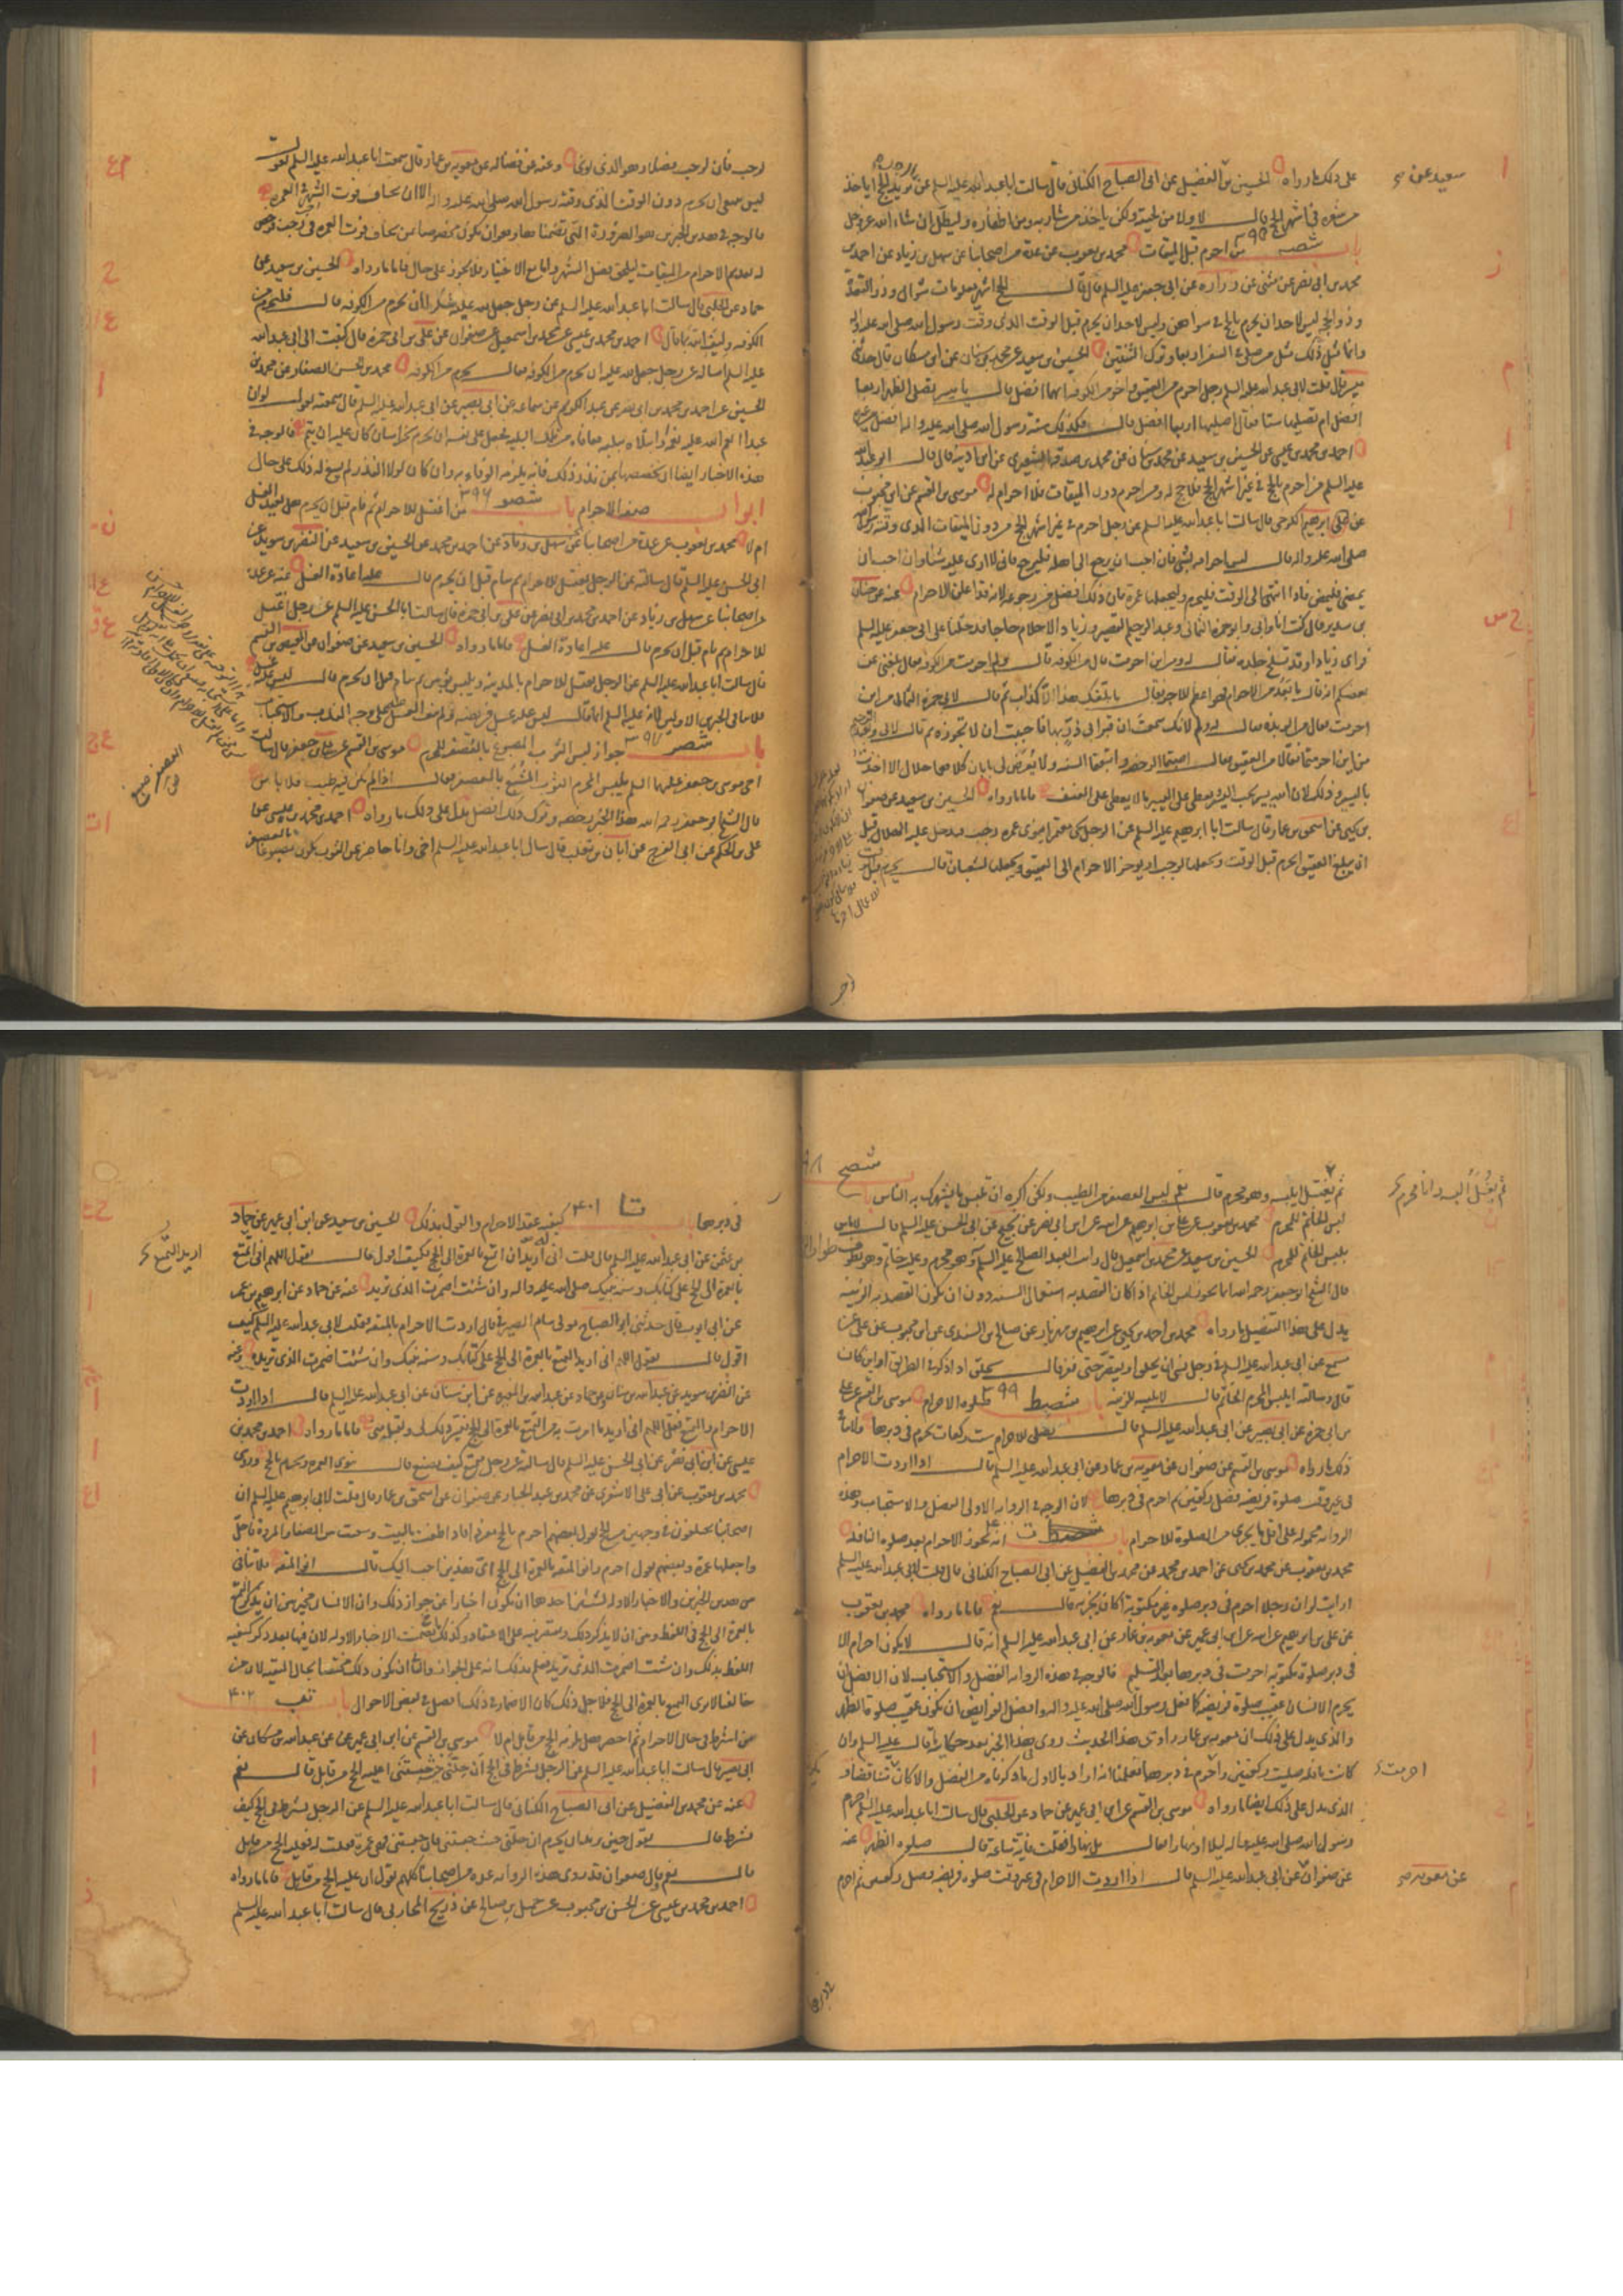 سعيد عن
على ذلك ما رواه الحسين بن الفضيل عن ابى الصباح الكنانى قال سالت ابا عبد الله عليه السلم عن يريد الحج اياخذ
من شعره فى اشهر الحج قال لا ولا من لحيته ولكن ياخذ من شاربه ومن اظفاره وليطل ان شاء الله عز وجل
باب شصه ٣٩٥ من احرم قبل الميقات محمد بن يعقوب عن عدة من اصحابنا عن سهل بن زياد عن احمد بن
محمد بن ابى نصر عن مثنى عن زراره عن ابى جعفر عليه السلم قال قال الحج اشهر معلومات شوال وذو القعدة
وذو الحجه ليس لاحد ان يحرم بالحج فى سواهن وليس لاحد ان يحرم قبل الوقت الذى وقت رسول الله صلى الله عليه واله
وانما مثل ذلك مثل من صلى فى السفر اربعا وترك الثنتين الحسين بن سعيد عن محمد بن سنان عن ابن مسكان قال حدثنى
ميسر قال قلت لابى عبد الله عليه السلم رجل احرم من العقيق واخر من الكوفه ايهما افضل قال يا ميسر تصلى الظهر اربعا
افضل ام تصليها ستا فقال اصليها اربعا افضل قال فكذلك سنة رسول الله صلى الله عليه واله افضل من غيرها
احمد بن محمد بن عيسى عن الحسين بن سعيد عن محمد بن سنان عن محمد بن صدقة الشعيرى عن ابن اذينه قال قال ابو عبد الله
عليه السلم من احرم بالحج فى غير اشهر الحج فلا حج له ومن احرم دون الميقات فلا احرام له موسى بن القسم عن ابن محبوب
عن ابرهيم الكرخى قال سالت ابا عبد الله عليه السلم عن رجل احرم فى غير اشهر الحج من دون الميقات الذى وقته رسول الله
صلى الله عليه واله قال ليس احرامه بشئ فان احب ان يرجع الى اهله فليرجع فانى لا ارى عليه شيئا وان احب ان
يمضى فليمض فاذا انتهى الى الوقت فليحرم وليجعلها عمرة فان ذلك افضل من رجوعه لانه قد اعلن الاحرام عنه عن حنان
بن سدير قال كنت انا وابى وابو حمزة الثمالى وعبد الرحيم القصير وزياد الاحلام حاجا فدخلنا على ابى جعفر عليه السلم
فراى زيادا وقد تسلخ جلده فقال له من اين احرمت قال من الكوفه قال ولم احرمت من الكوفه فقال بلغنى عن
بعضكم انه قال ما بعد من الاحرام فهو اعظم للاجر فقال ما بلغك هذا الا كذاب ثم قال لابى حمزة الثمالى من اين
احرمت فقال من الربذه فقال له ولم لانك سمعت ان قبر ابى ذر بها فاحببت ان لا تجوزه ثم قال لابى وعبد الرحيم
من اين احرمتما فقالا من العقيق فقال اصبتما الرخصه واتبعتما السنه ولا يعرض لى بابان كلاهما حلال الا اخذت
باليسير وذلك لان الله يسير يحب اليسير ويعطى على اليسير ما لا يعطى على العنف فاما ما رواه الحسين بن سعيد عن صفوان
بن يحيى عن اسحق بن عمار قال سالت ابا ابرهيم عليه السلم عن الرجل يجئ معتمرا ينوى عمره رجب فيدخل عليه الهلال قبل
ان يبلغ العقيق ايحرم قبل الوقت ويجعلها لرجب او يوخر الاحرام الى العقيق ويجعلها لشعبان قال يحرم قبل الوقت
لرجب فان لرجب فضلا وهو الذى نوى وعنه عن فضاله عن معويه بن عمار قال سمعت ابا عبد الله عليه السلم يقول
ليس ينبغى ان يحرم دون الوقت الذى وقته رسول الله صلى الله عليه واله الا ان يخاف فوت الشهر فى العمره
فالوجه فى هذين الخبرين هو الضرورة التى تضمناها وهو ان يكون مخصوصا بمن يخاف فوت العمره فى رجب فرخص
له تقديم الاحرام من الميقات ليلحق فضل الشهر واما مع الاختيار فلا يجوز على حال فاما ما رواه الحسين بن سعيد عن
حماد عن الحلبى قال سالت ابا عبد الله عليه السلم عن رجل جعل لله عليه شكرا ان يحرم من الكوفه قال فليحرم من
الكوفه وليف لله بما قال احمد بن محمد بن عيسى عن محمد بن اسمعيل عن صفوان عن على بن ابى حمزه قال كتبت الى ابى عبد الله
عليه السلم اساله عن رجل جعل لله عليه ان يحرم من الكوفه فقال يحرم من الكوفه محمد بن الحسن الصفار عن محمد بن
الحسين عن احمد بن محمد بن ابى نصر عن عبد الكريم عن سماعه عن ابى بصير عن ابى عبد الله عليه السلم قال سمعته يقول لو ان
عبدا انعم الله عليه نعمة او ابتلاه ببليه فعافاه من تلك البليه فجعل على نفسه ان يحرم بخراسان كان عليه ان يتم فالوجه فى
هذه الاخبار ايضا ان نخصصها بمن نذر ذلك فانه يلزمه الوفاء به وان كان لولا النذر لم يسغ له ذلك على حال
ابواب صفة الاحرام باب شصو ٣٩٦ من اغتسل للاحرام ثم نام قبل ان يحرم هل يعيد الغسل
ام لا محمد بن يعقوب عن عدة من اصحابنا عن سهل بن زياد عن احمد بن محمد عن الحسين بن سعيد عن النضر بن سويد عن
ابى الحسن عليه السلم قال سالته عن الرجل يغتسل للاحرام ثم ينام قبل ان يحرم قال عليه اعادة الغسل عنه عن عدة
من اصحابنا عن سهل بن زياد عن احمد بن محمد بن ابى نصر عن على بن ابى حمزه قال سالت ابا الحسن عليه السلم عن رجل اغتسل
للاحرام ثم نام قبل ان يحرم قال عليه اعادة الغسل فاما ما رواه الحسين بن سعيد عن صفوان عن العيص بن القسم
قال سالت ابا عبد الله عليه السلم عن الرجل يغتسل للاحرام بالمدينه ويلبس ثوبين ثم ينام قبل ان يحرم قال ليس عليه غسل
فلا ينافى الخبرين الاولين لانه عليه السلم انما قال ليس عليه غسل فريضه ولم ينف الغسل على وجه الندب والاستحباب
باب شصز ٣٩٧ جواز لبس الثوب المصبوغ بالعصفر للمحرم موسى بن القسم عن على بن جعفر قال سالت
اخى موسى بن جعفر عليهما السلم يلبس المحرم الثوب المشبع بالعصفر فقال اذا لم يكن فيه طيب فلا باس
قال الشيخ ابو جعفر رحمه الله هذا الخبر رخصه وترك ذلك افضل يدل على ذلك ما رواه احمد بن محمد بن عيسى عن
على بن الحكم عن ابى الفرج عن ابان بن تغلب قال سال ابا عبد الله عليه السلم اخى وانا حاضر عن الثوب يكون مصبوغا بالعصفر
العصفر صبغ
شصح
ثم يغسل البسه وانا محرم
ثم يغتسل ايلبسه وهو محرم قال نعم ليس العصفر من الطيب ولكنى اكره ان تلبس ما يشهرك به الناس
لبس الخاتم للمحرم محمد بن يعقوب عن على بن ابرهيم عن ابيه عن ابن ابى نصر عن نجيح عن ابى الحسن عليه السلم قال لا باس
بلبس الخاتم للمحرم الحسين بن سعيد عن محمد بن اسمعيل قال رايت العبد الصالح عليه السلم وهو محرم وعليه خاتم وهو يطوف
قال الشيخ ابو جعفر رحمه الله انما يجوز لبس الخاتم اذا كان القصد به استعمال السنه دون ان يكون القصد به الزينه
يدل على هذا التفصيل ما رواه محمد بن احمد بن يحيى عن ابرهيم بن مهزيار عن صالح بن السندى عن ابن محبوب عن على عن
مسمع عن ابى عبد الله عليه السلم فى رجل نسى ان يحلق او يقصر حتى نفر قال يحلق اذا ذكر فى الطريق او اين كان
قال وسالته ايلبس المحرم الخاتم قال لا يلبسه للزينه باب شصط ٣٩٩ صلوة الاحرام موسى بن القسم عن على
بن ابى حمزه عن ابى بصير عن ابى عبد الله عليه السلم قال تصلى للاحرام ست ركعات تحرم فى دبرها
ذلك ما رواه موسى بن القسم عن صفوان عن معويه بن عمار عن ابى عبد الله عليه السلم قال اذا اردت الاحرام
فى غير وقت صلوة فريضه فصل ركعتين ثم احرم فى دبرها لان الوجه فى الروايه الاولى الفضل والاستحباب وهذه
الروايه محموله على اقل ما يجزى من الصلوة للاحرام باب ت انه يجوز الاحرام بعد صلوة النافله
محمد بن يعقوب عن محمد بن يحيى عن احمد بن محمد عن محمد بن الفضيل عن ابى الصباح الكنانى قال قلت لابى عبد الله عليه السلم
ارايت لو ان رجلا احرم فى دبر صلوة غير مكتوبه اكان يجزيه قال نعم فاما ما رواه محمد بن يعقوب
عن على بن ابرهيم عن ابيه عن ابن ابى عمير عن معويه بن عمار عن ابى عبد الله عليه السلم انه قال لا يكون احرام الا
فى دبر صلوة مكتوبه احرمت فى دبرها بعد التسليم فالوجه فى هذه الروايه الفضل والاستحباب لان الافضل ان
يحرم الانسان عقيب صلوة فريضه كما فعل رسول الله صلى الله عليه واله وافضل الفرايض ان يكون عقيب صلوة الظهر
والذى يدل على ذلك ان معويه بن عمار راوى هذا الحديث روى هذا الخبر بعد حكايته قال عليه السلم وان
كانت نافله صليت ركعتين واحرم فى دبرها فعلمنا انه اراد بالاول ما ذكرناه من الفضل والا كان متناقضا و
الذى يدل على ذلك ايضا ما رواه موسى بن القسم عن ابن ابى عمير عن حماد عن الحلبى قال سالت ابا عبد الله عليه السلم احرم
رسول الله صلى الله عليه واله ليلا او نهارا فقال بل نهارا فقلت فاية ساعة قال صلوة الظهر عنه
عن صفوان عن ابى عبد الله عليه السلم قال اذا اردت الاحرام فى غير وقت صلوة فريضه فصل ركعتين ثم احرم
احرمت
عن معويه
فى دبرها باب تا ٤٠١ كيفيه عقد الاحرام والقول بذلك الحسين بن سعيد عن ابن ابى عمير عن حماد
بن عثمن عن ابى عبد الله عليه السلم قال قلت انى اريد ان اتمتع بالعمرة الى الحج فكيف اقول قال تقول اللهم انى اتمتع
بالعمرة الى الحج على كتابك وسنة نبيك صلى الله عليه واله وان شئت اضمرت الذى تريد عنه عن حماد عن ابرهيم بن عمر
عن ابى ايوب قال حدثنى ابو الصباح مولى بسام الصيرفى قال اردت الاحرام بالمتعه فقلت لابى عبد الله عليه السلم كيف
اقول قال تقول اللهم انى اريد التمتع بالعمرة الى الحج على كتابك وسنة نبيك وان شئت اضمرت الذى تريده وعنه
عن النضر بن سويد عن عبد الله بن سنان وعن حماد عن عبد الله بن المغيره عن ابن سنان عن ابى عبد الله عليه السلم قال اذا اردت
الاحرام والتمتع فقل اللهم انى اريد ما امرت به من التمتع بالعمرة الى الحج فيسر ذلك لى وتقبله منى فاما ما رواه احمد بن محمد بن
عيسى عن ابن ابى نصر عن ابى الحسن عليه السلم قال سالته عن رجل متمتع كيف يصنع قال ينوى العمره ويحرم بالحج وروى
محمد بن يعقوب عن ابى على الاشعرى عن محمد بن عبد الجبار عن صفوان عن اسحق بن عمار قال قلت لابى ابرهيم عليه السلم ان
اصحابنا يختلفون فى وجهين من الحج يقول بعضهم احرم بالحج مفردا فاذا طفت بالبيت وسعيت بين الصفا والمروة فاحل
واجعلها عمرة وبعضهم يقول احرم وانو المتعه بالعمرة الى الحج اى هذين احب اليك قال انو المتعه فلا تنافى
من هذين الخبرين والاخبار الاوله لشيئين احدهما ان يكون اخبارا عن جواز ذلك وان الانسان مخير بين ان يذكر التمتع
بالعمرة الى الحج فى اللفظ وبين ان لا يذكر ذلك ويقتصر فيه على الاعتقاد وكذلك تضمنت الاخبار الاوله لان فيها بعد ذكر كيفيه
اللفظ بذلك وان شئت اضمرت الذى تريد فعلم بذلك انه على الجواز والثانى ان يكون ذلك مختصا بحال التقيه لان من
خالفنا لا يرى التمتع بالعمرة الى الحج فلاجل ذلك كان الاضمار فى ذلك افضل فى بعض الاحوال باب تب ٤٠٢
من اشترط فى حال الاحرام ثم احصر هل يلزمه الحج من قابل ام لا موسى بن القسم عن ابن ابى عمير عن عبد الله بن مسكان عن
ابى بصير قال سالت ابا عبد الله عليه السلم عن الرجل يشترط فى الحج ان حلنى حيث حبستنى اعليه الحج من قابل قال نعم
عنه عن محمد بن الفضيل عن ابى الصباح الكنانى قال سالت ابا عبد الله عليه السلم عن الرجل يشترط فى الحج كيف
يشترط قال يقول حين يريد ان يحرم ان حلنى حيث حبستنى فان حبستنى فهى عمرة فقلت له فعليه الحج من قابل
قال نعم وقال صفوان قد روى هذه الروايه عدة من اصحابنا كلهم يقول ان عليه الحج من قابل فاما ما رواه
احمد بن محمد بن عيسى عن الحسن بن محبوب عن جميل بن صالح عن ذريح المحاربى قال سالت ابا عبد الله عليه السلم
اريد التمتع